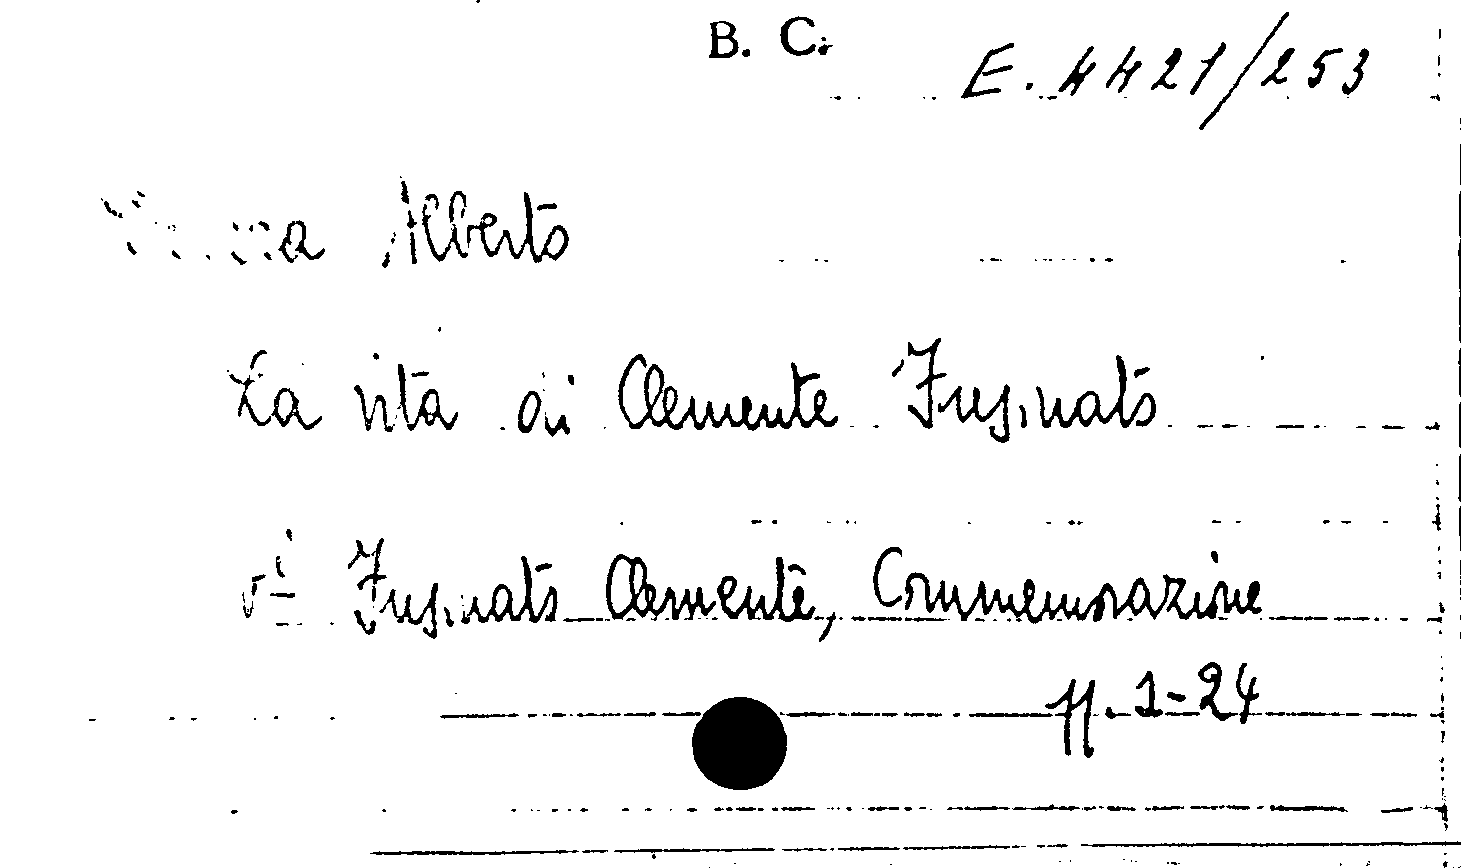 B. C.
E. 4421/253
Alberto
La vita di Clemente Fusinato
vi Fusinato Clemente, Commemorazione
pp. 1-24